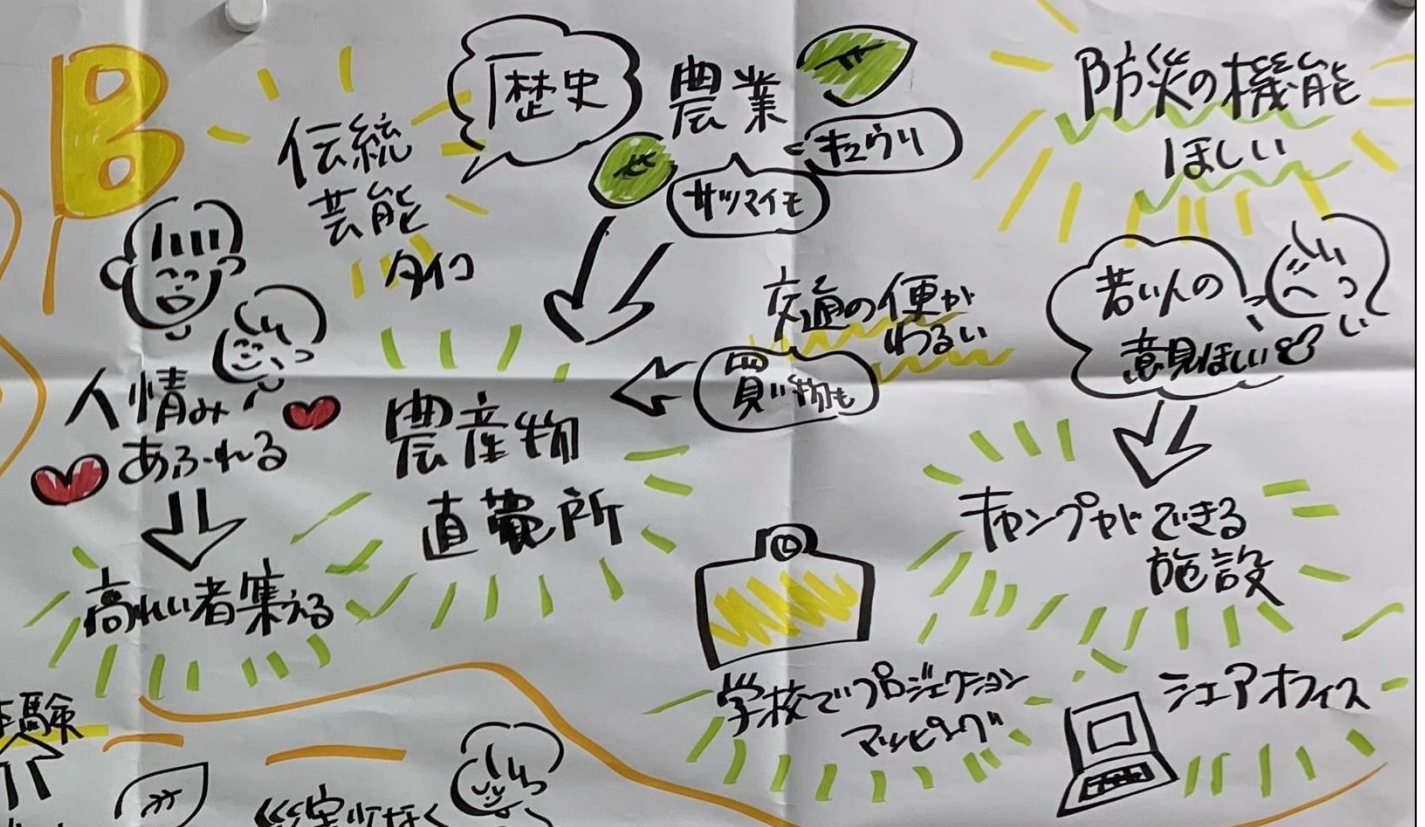 B
伝統
芸能
タイコ
歴史
農業
キュウリ
サツマイモ
防災の機能
ほしい
交通の便が
わるい
買い物も
若い人の
意見ほしい
人情み
あふれる
農産物
直売所
高れい者集える
キャンプができる
施設
学校でプロジェクション
マッピング
シェアオフィス
体験